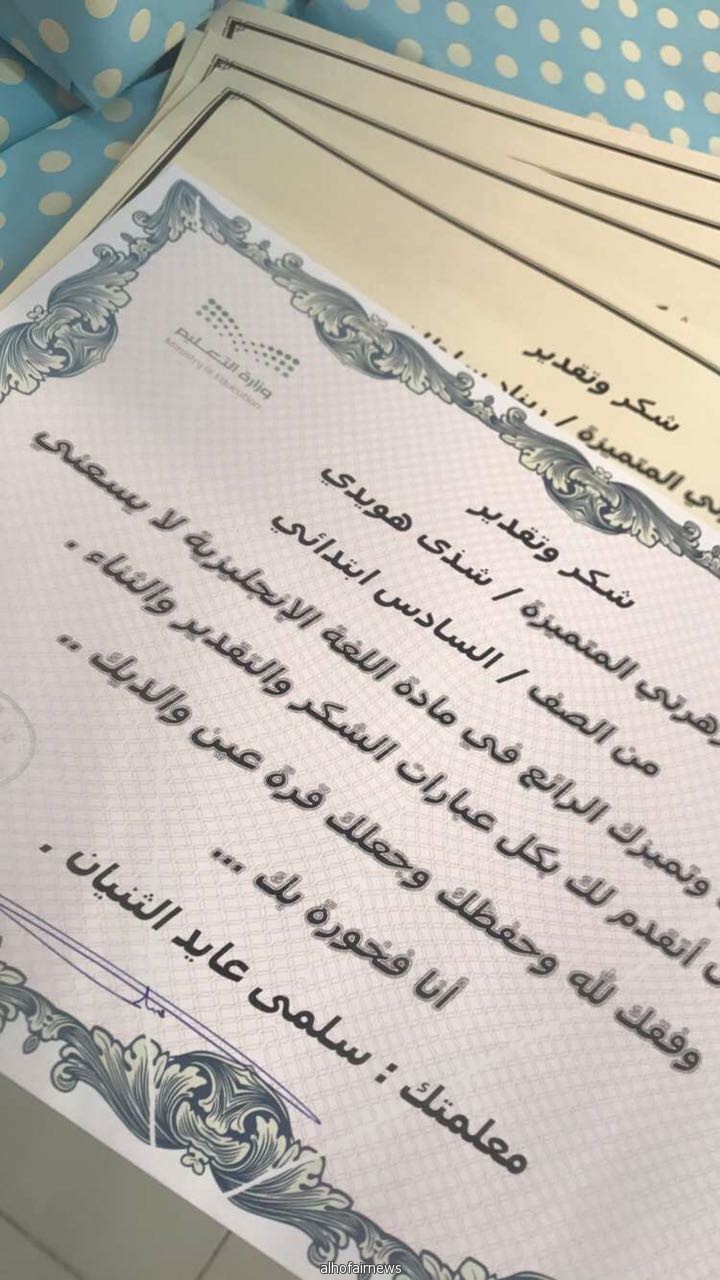 شكر وتقدير
المتميزة /
وزارة التعليم
Ministry of Education
شكر وتقدير
زهرتي المتميزة / شذى هويدي
من الصف / السادس ابتدائي
وتميزك الرائع في مادة اللغة الإنجليزية لا يسعني
أتقدم لك بكل عبارات الشكر والتقدير والثناء .
وفقك لله وحفظك وجعلك قرة عين والديك ..
أنا فخورة بك ...
معلمتك : سلمى عايد الثنيان .
alhofairnews